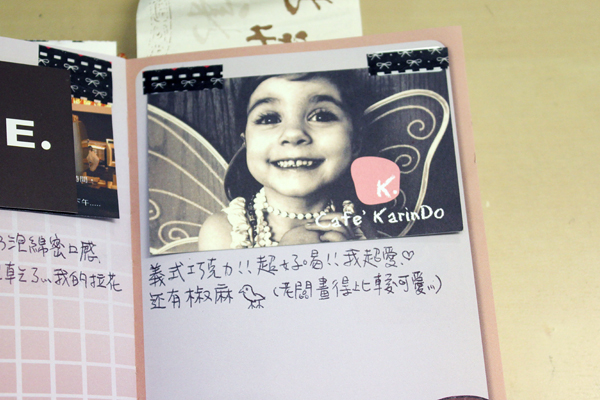 E.
K.
Cafe' KarinDo
泡綿密口感,
我的拉花
義式巧克力!!超好喝!!我超愛♡
並有椒麻 (老闆畫得比較可愛...)